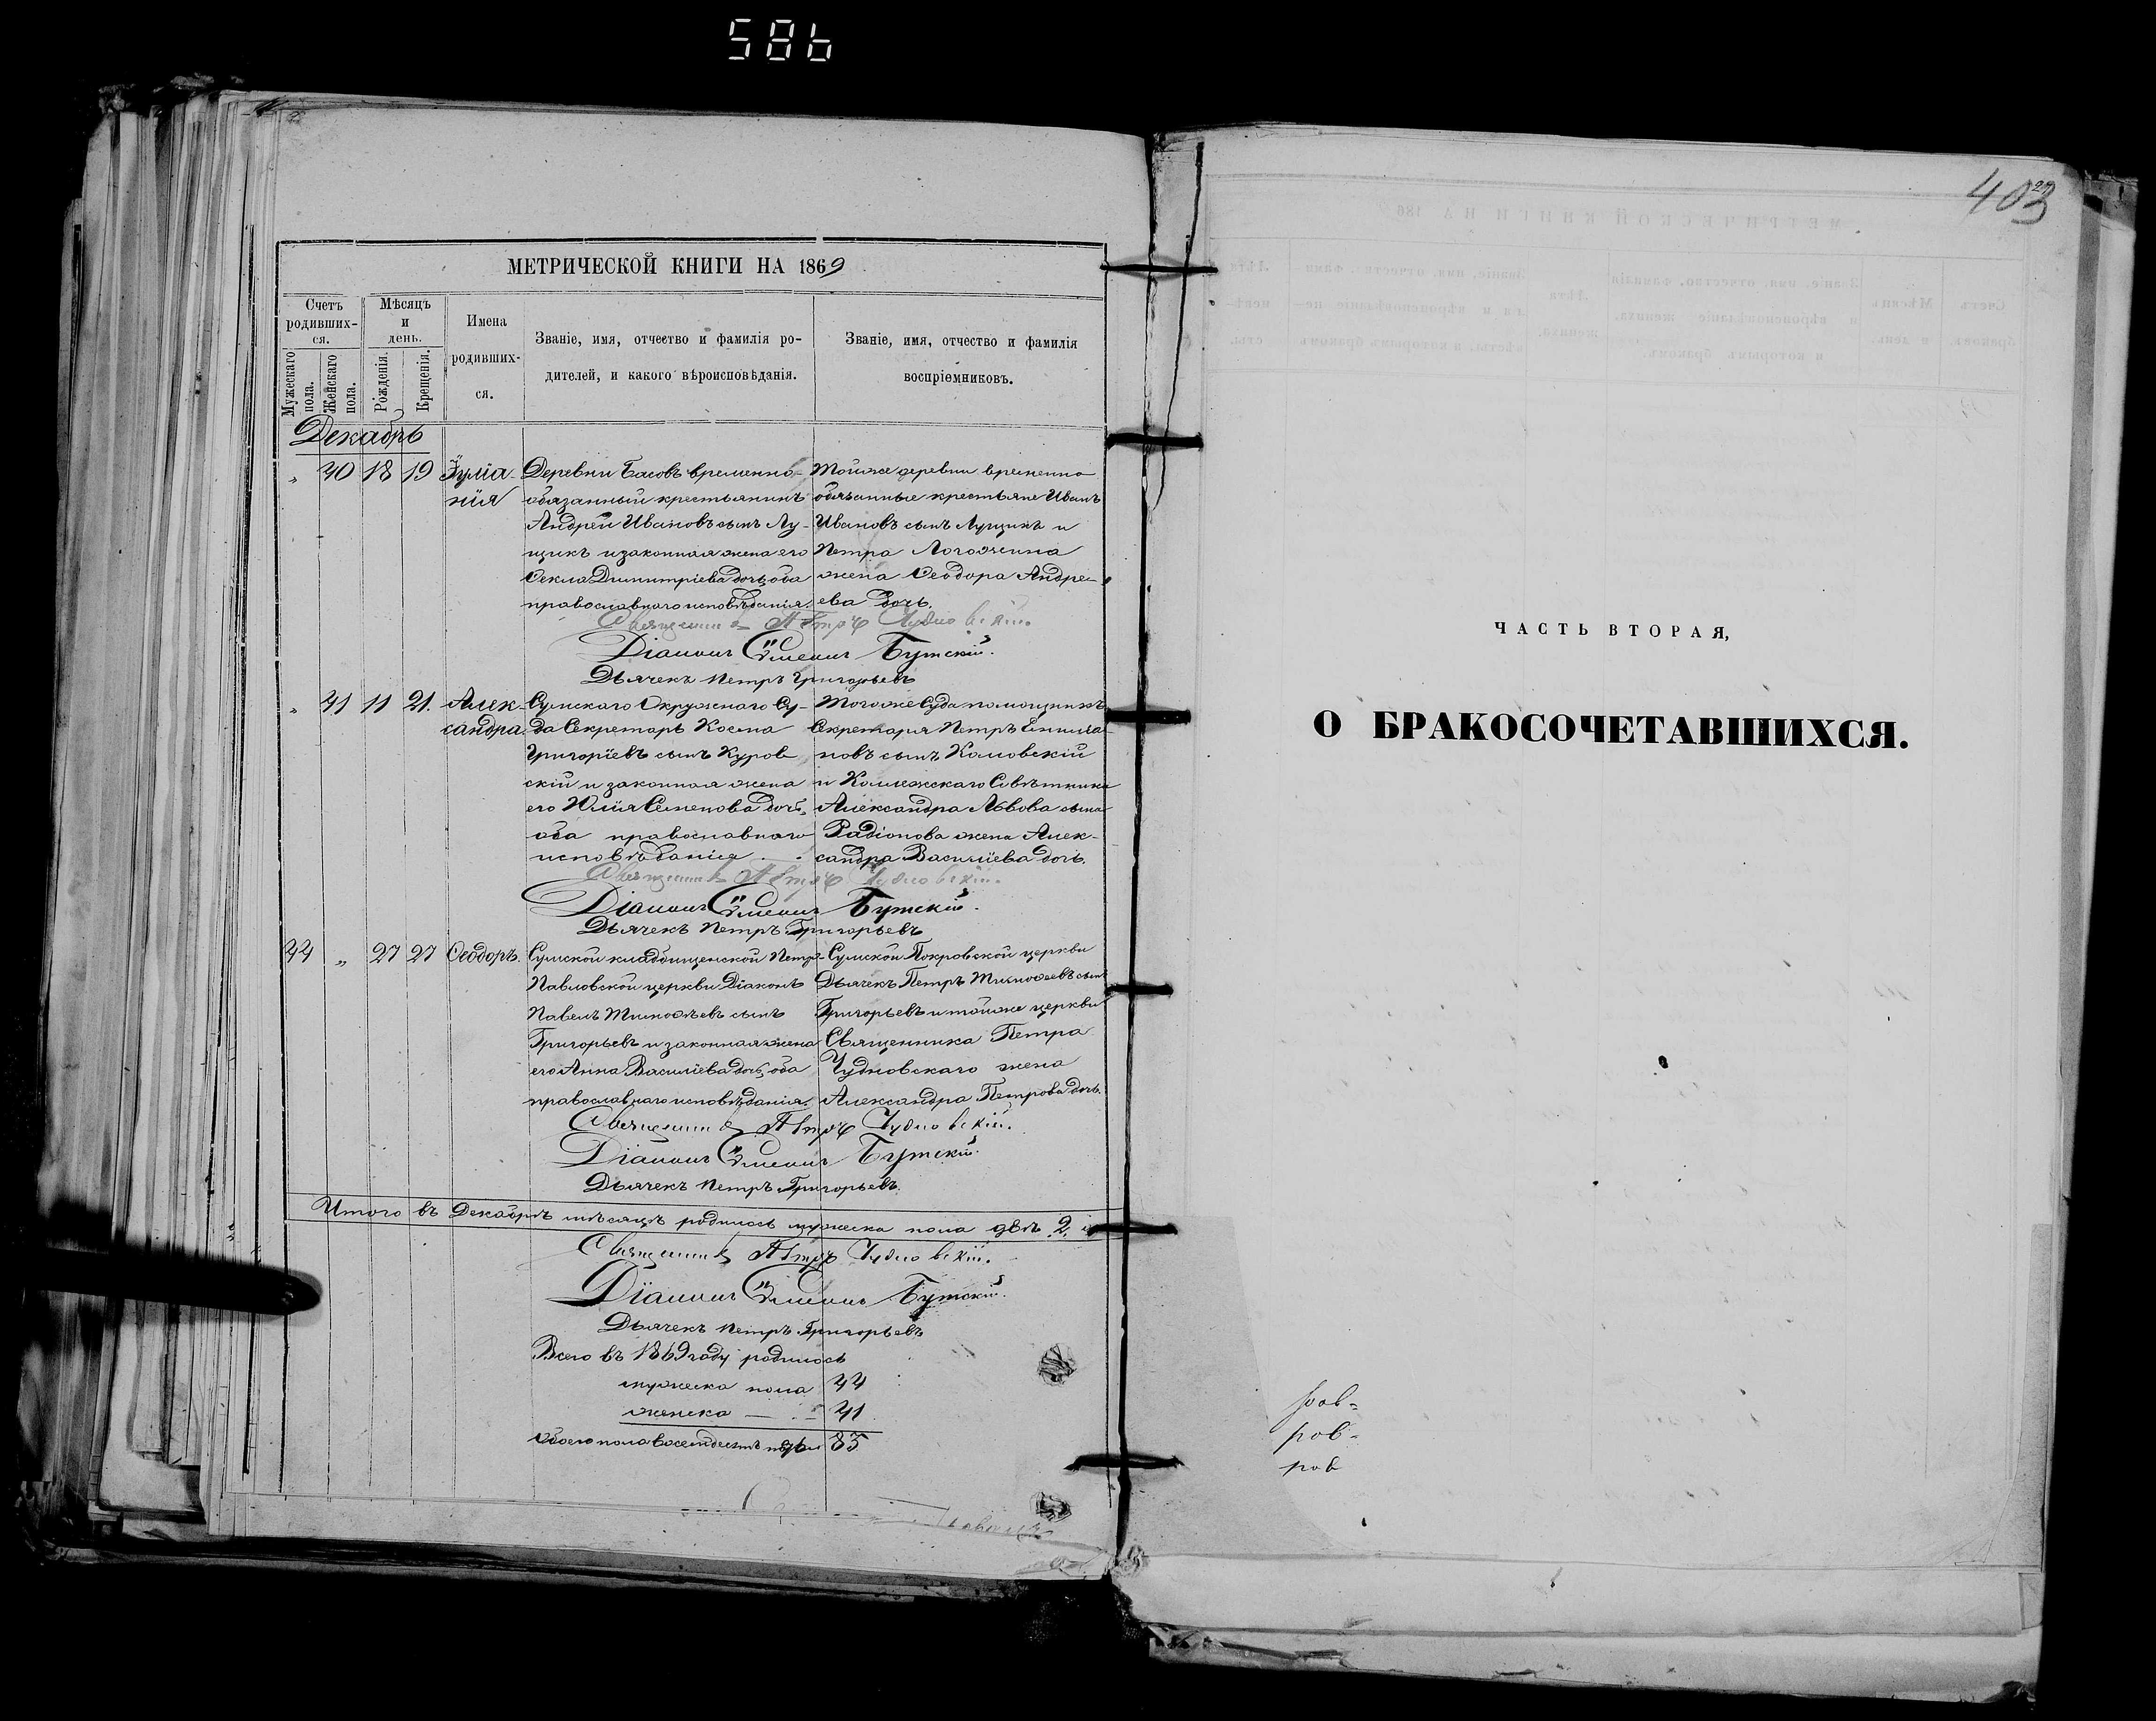 586
МЕТРИЧЕСКОЙ КНИГИ НА 1869
Счетъ родивших-ся.
Мужескаго пола.
Женскаго пола.
Мѣсяцъ и день.
Рожденія.
Крещенія.
Имена родивших-ся.
Званіе, имя, отчество и фамилія ро-
дителей, и какого вѣроисповѣданія.
Званіе, имя, отчество и фамилія
воспріемниковъ.
Декабрь
" 40 18 19 Іулiа-
нія
Деревни Басовъ временно-
обязанный крестьянинъ
Андрей Ивановъ сынъ Лу-
щикъ и законная жена его
Ѳекла Димитріева дочь, оба
православнаго исповѣданія.
Тойже деревни временно
обязанные крестьяне Иванъ
Ивановъ сынъ Лущикъ и
Петра
жена Ѳеодора Андре-
ева дочь.
Священникъ Петръ Чудновскій.
Діаконъ Сѵмеонъ Бутскій.
Дьячекъ Петръ Григорьевъ
" 41 11 21. Алек-
сандра.
Сумскаго Окружнаго Су-
да Секретарь Косма
Григоріевъ сынъ Куров
скій и законная жена
его Юлія Семенова дочь,
оба православнаго
исповѣданія
Тогоже Суда помощникъ
Секретаря Петръ
новъ сынъ
и Коллежскаго Совѣтника
Александра Львова сына
Радіонова жена Алек-
сандра Василіева дочь.
Священникъ Петръ Чудновскій.
Діаконъ Сѵмеонъ Бутскій.
Дьячекъ Петръ Григорьевъ
44 " 27 27 Ѳеодоръ.
Сумской кладбищенской Петро-
Павловской церкви Діаконъ
Павелъ Тимоѳѣевъ сынъ
Григорьевъ и законная жена
его Анна Василіева дочь, оба
православнаго исповѣданія.
Сумской Покровской церкви
Дьячекъ Петръ Тимоѳеевъ сынъ
Григорьевъ и тойже церкви
Священника Петра
Чудновскаго жена
Александра Петрова дочь.
Священникъ Петръ Чудновскій.
Діаконъ Сѵмеонъ Бутскій.
Дьячекъ Петръ Григорьевъ.
Итого въ Декабрѣ мѣсяцѣ родилось мужеска пола два 2, и
Священникъ Петръ Чудновскій.
Діаконъ Сѵмеонъ Бутскій.
Дьячекъ Петръ Григорьевъ
Всего въ 1869 году родилось
мужеска пола 44
женска — 41
обоего пола восемдесятъ пять 85
403
ЧАСТЬ ВТОРАЯ,
О БРАКОСОЧЕТАВШИХСЯ.
ров-
ров-
ров